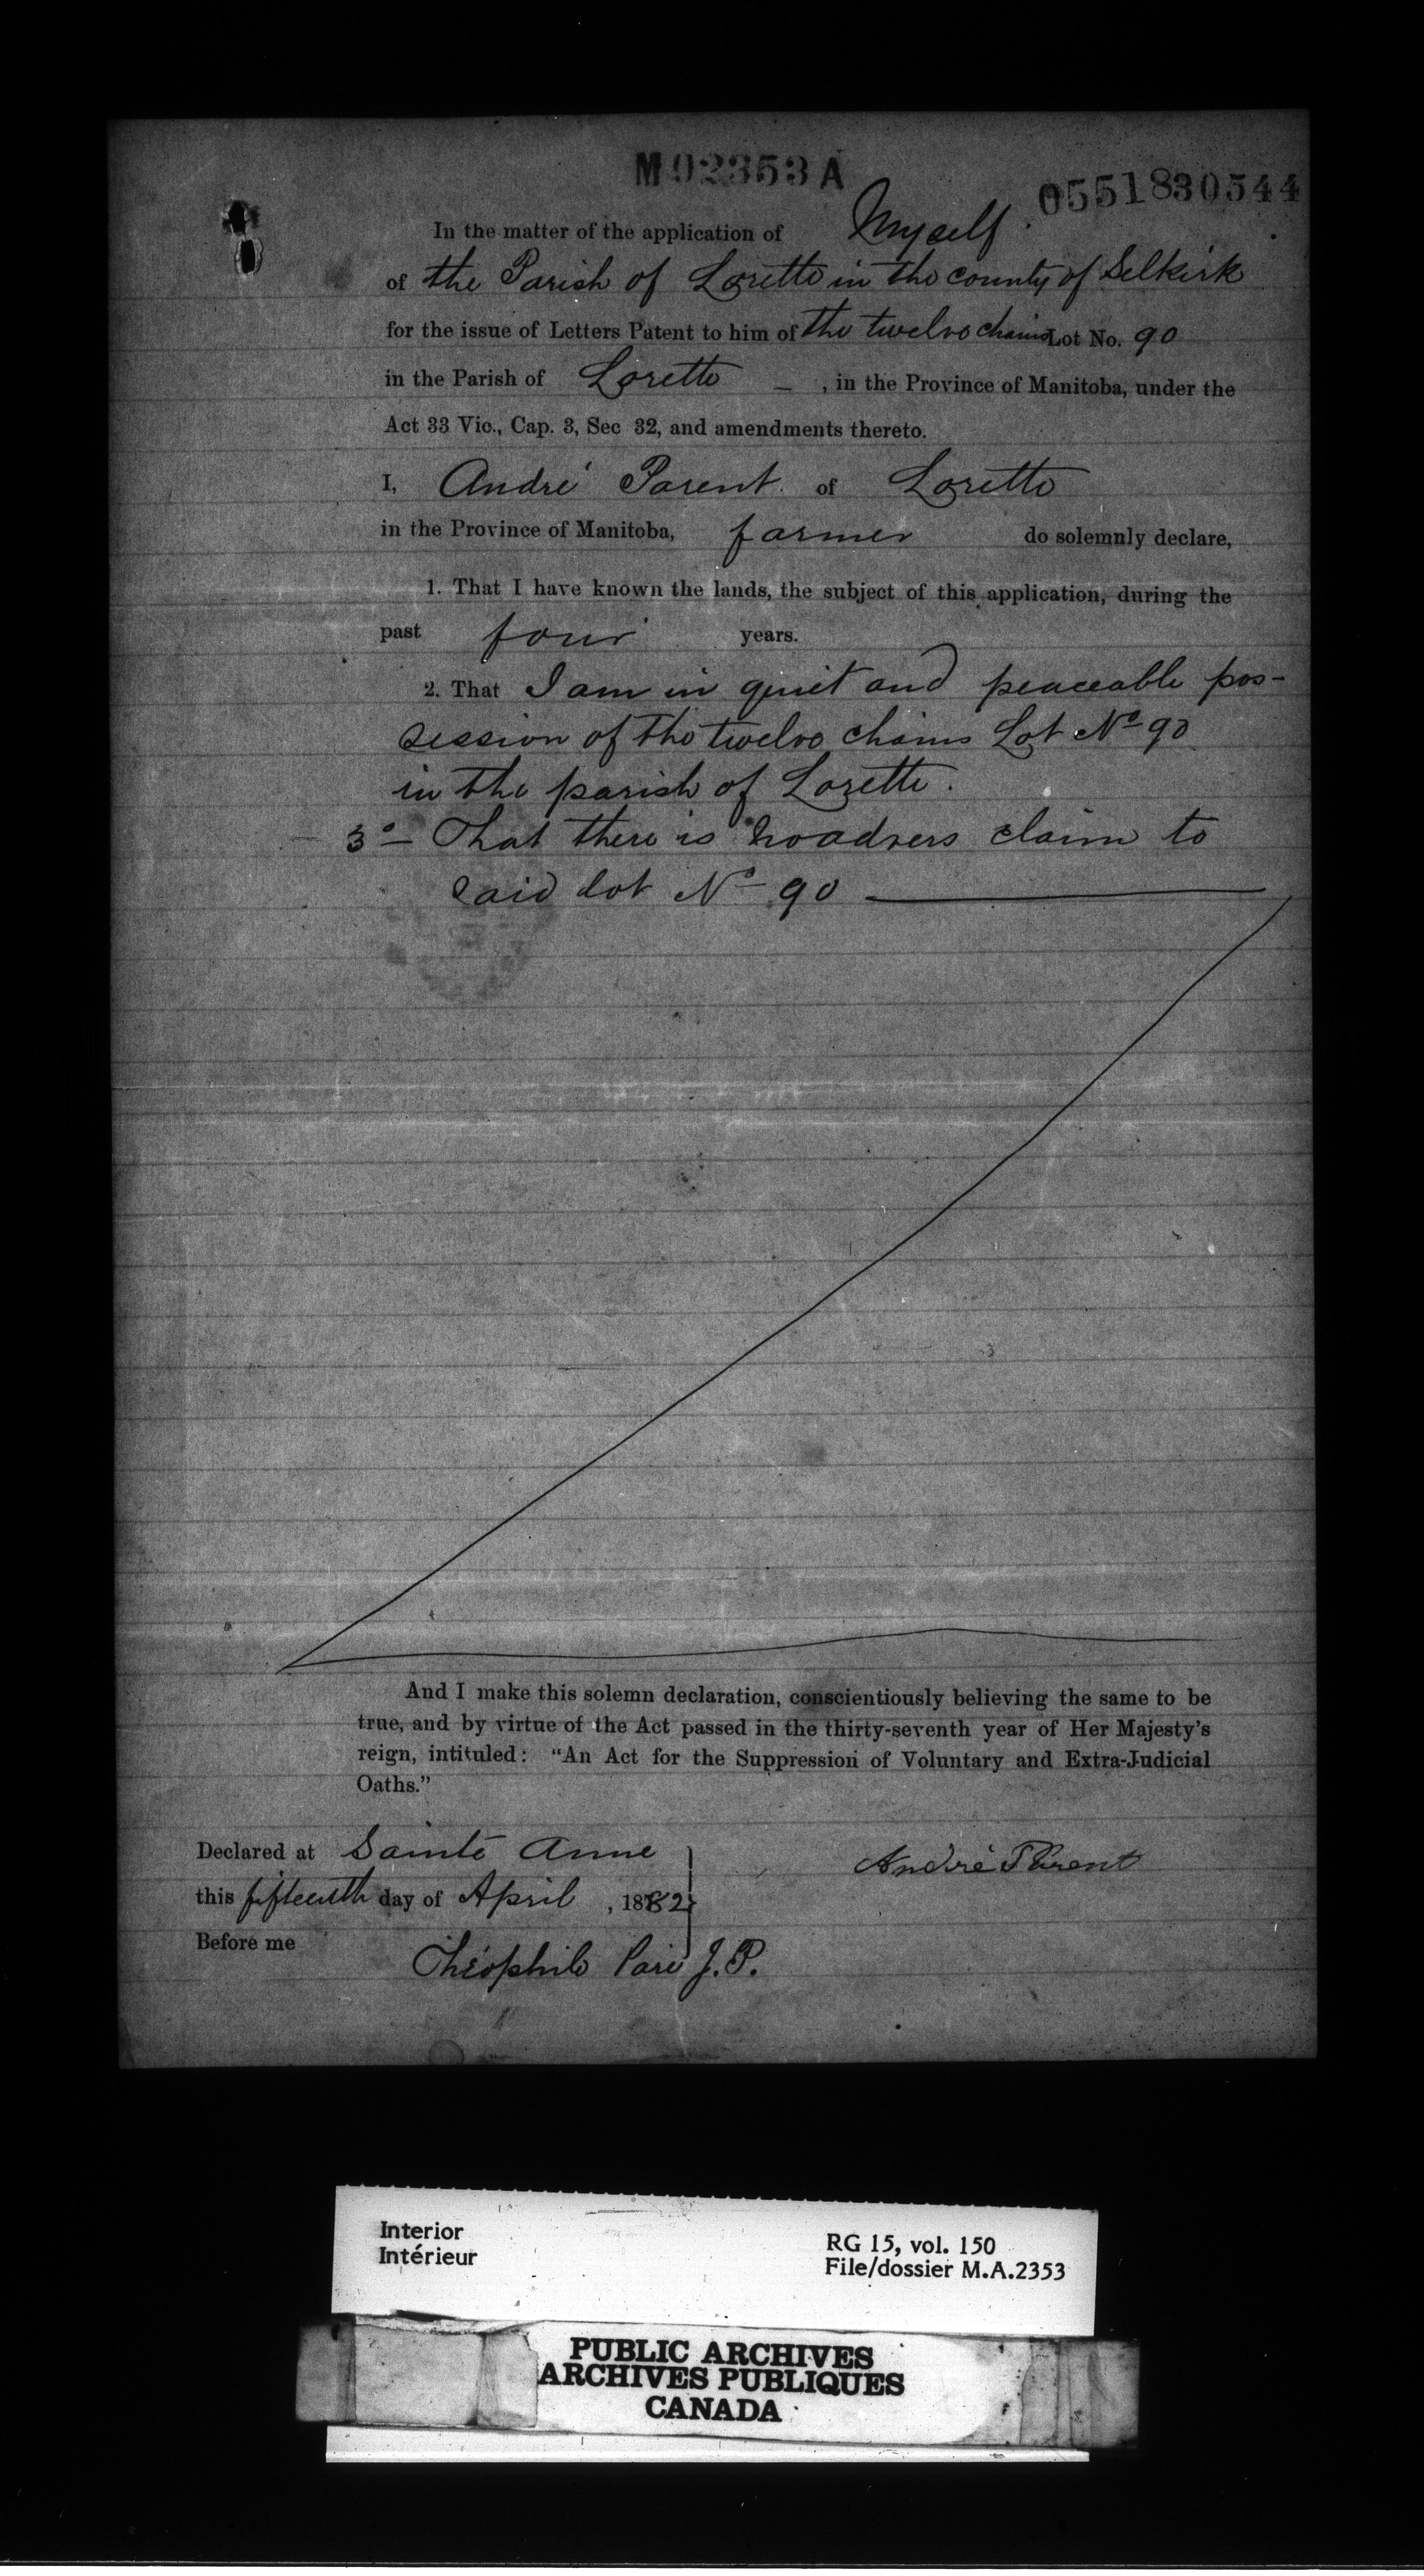 M 02353 A
0551830544
In the matter of the application of Myself
of the Parish of Lorette in the county of Selkirk
for the issue of Letters Patent to him of the twelve chains Lot No. 90
in the Parish of Lorette – , in the Province of Manitoba, under the
Act 33 Vic., Cap. 3, Sec 32, and amendments thereto.
I, André Parent of Lorette
in the Province of Manitoba, farmer do solemnly declare,
1. That I have known the lands, the subject of this application, during the
past four years.
2. That I am in quiet and peaceable pos-
session of the twelve chains Lot No 90
in the parish of Lorette.
3o – That there is no advers claim to
said lot No 90
And I make this solemn declaration, conscientiously believing the same to be
true, and by virtue of the Act passed in the thirty-seventh year of Her Majesty's
reign, intituled: "An Act for the Suppression of Voluntary and Extra-Judicial
Oaths."
Declared at Sainte Anne
this fifteenth day of April , 1882
André Parent
Before me
Théophile Paré J.P.
Interior
Intérieur
RG 15, vol. 150
File/dossier M.A.2353
PUBLIC ARCHIVES
ARCHIVES PUBLIQUES
CANADA